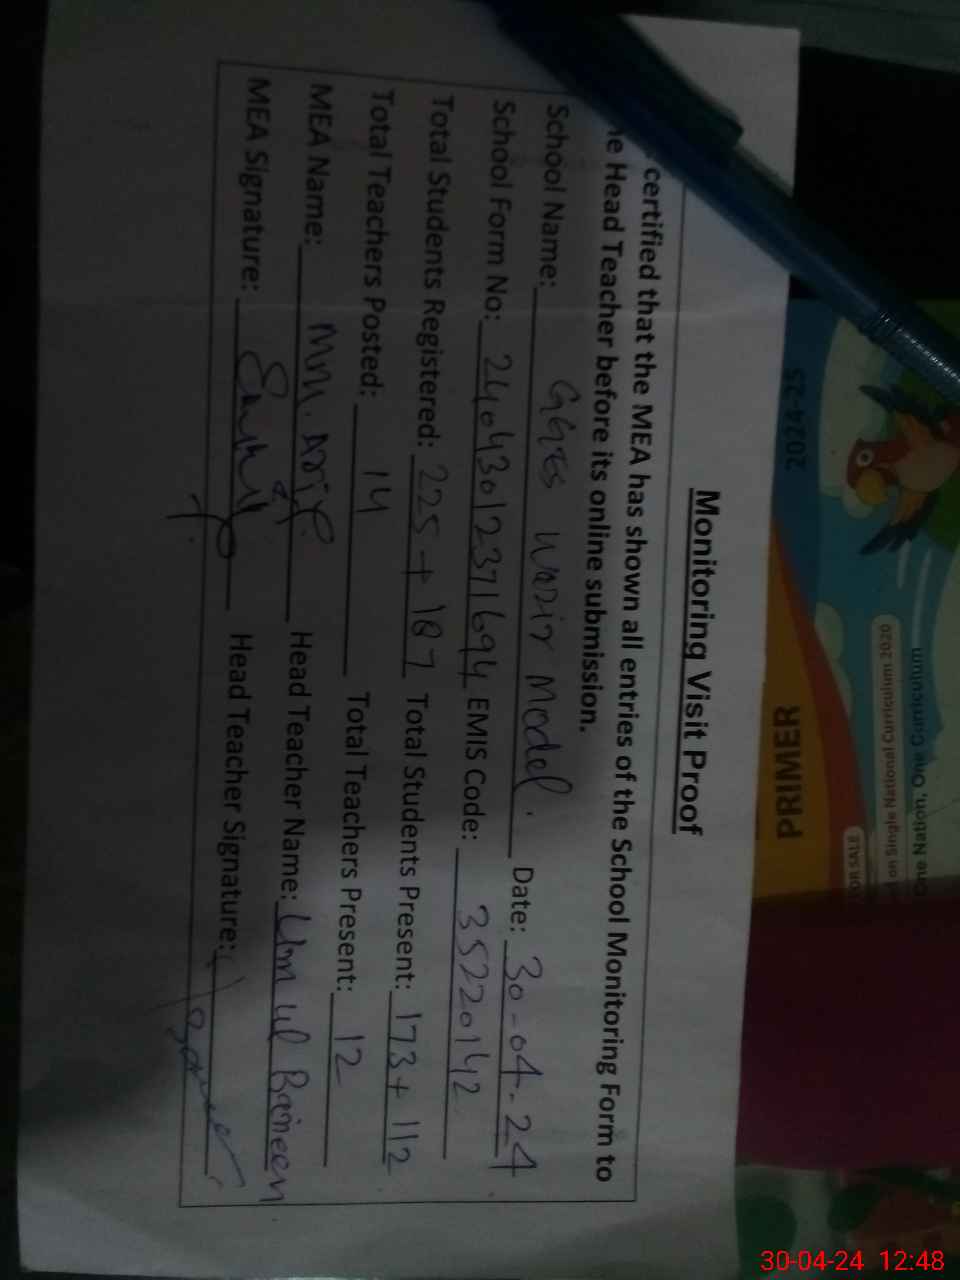 Monitoring Visit Proof
certified that the MEA has shown all entries of the School Monitoring Form to
he Head Teacher before its online submission.
School Name: GGES Wazir Model. Date: 30-04-24
School Form No: 24043012371694 EMIS Code: 35220142
Total Students Registered: 225+187 Total Students Present: 173+112
Total Teachers Posted: 14 Total Teachers Present: 12
MEA Name: MM. Arif Head Teacher Name: Um ul Baneen
MEA Signature: Head Teacher Signature:
2024-25
PRIMER
One Nation, One Curriculum
National Curriculum 2020
OR SALE
30-04-24 12:48